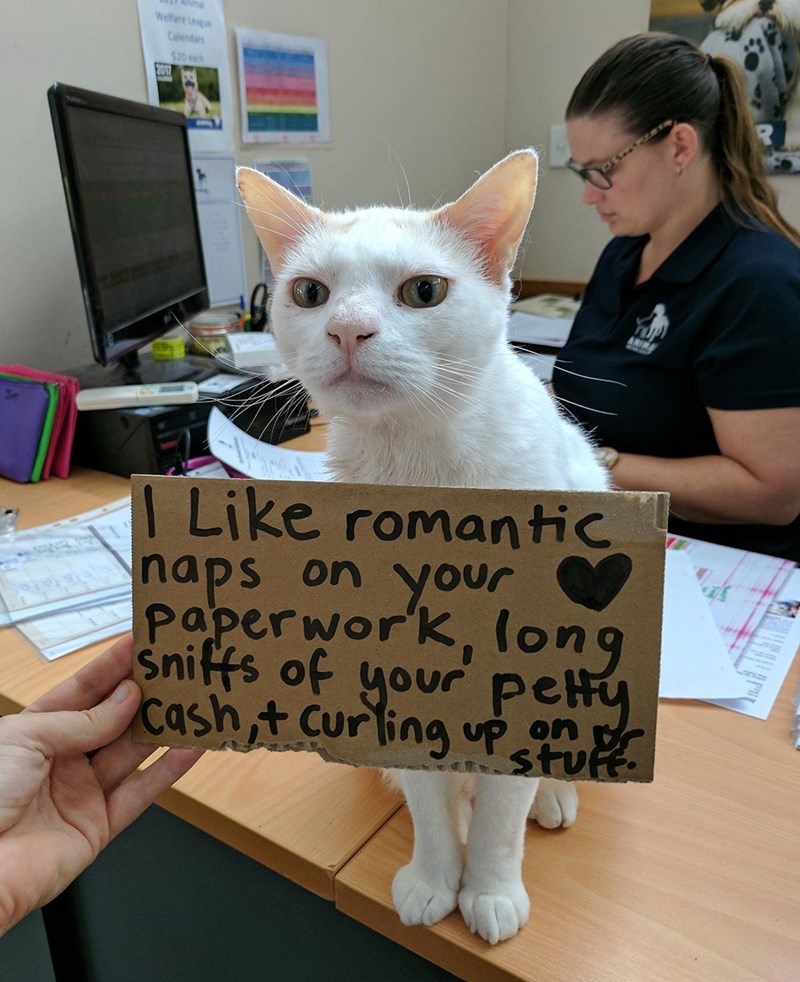 2017 Animal
Welfare League
Calendars
$20 each
2017
I Like romantic
naps on your ♥
paperwork, long
sniffs of your petty
cash, + curling up on ur
stuff.